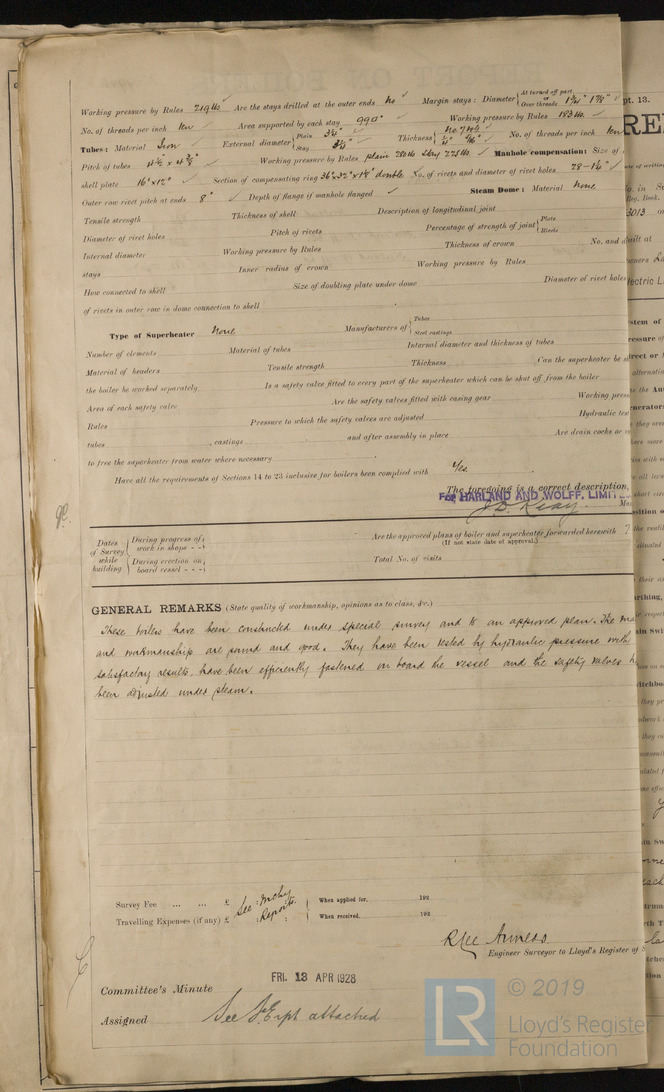 Working pressure by Rules 219 lbs Are the stays drilled at the outer ends No Margin stays: Diameter { At turned off part, or Over threads 1¾" 1⅞"
No. of threads per inch ten Area supported by each stay 99" Working pressure by Rules 183 lbs.
Tubes: Material Iron External diameter { Plain 3¼" Stay 3¼" Thickness { No. of threads per inch ten
Pitch of tubes 4½ x 4⅜" Working pressure by Rules plain 280 lbs stay 225 lbs Manhole compensation: Size of
shell plate 16" x 12" Section of compensating ring double No. of rivets and diameter of rivet holes 28 -
Outer row rivet pitch at ends 8" Depth of flange if manhole flanged Steam Dome: Material None
Tensile strength Thickness of shell Description of longitudinal joint
Diameter of rivet holes Pitch of rivets Percentage of strength of joint { Plate Rivets
Internal diameter Working pressure by Rules Thickness of crown No. and
stays Inner radius of crown Working pressure by Rules
How connected to shell Size of doubling plate under dome Diameter of rivet holes
of rivets in outer row in dome connection to shell
Type of Superheater None Manufacturers of { Tubes Steel castings
Number of elements Material of tubes Internal diameter and thickness of tubes
Material of headers Tensile strength Thickness Can the superheater be
the boiler be worked separately Is a safety valve fitted to every part of the superheater which can be shut off from the boiler
Area of each safety valve Are the safety valves fitted with easing gear Working
Rules Pressure to which the safety valves are adjusted Hydraulic
tubes , castings and after assembly in place Are drain cocks or
to free the superheater from water where necessary
Have all the requirements of Sections 14 to 23 inclusive for boilers been complied with Yes.
The foregoing is a correct description,
For HARLAND AND WOLFF,
Dates of Survey while building { During progress of work in shops - - During erection on board vessel - - -
Are the approved plans of boiler and superheater forwarded herewith
(If not state date of approval.)
Total No. of visits
GENERAL REMARKS (State quality of workmanship, opinions as to class, &c.)
These boilers have been constructed under special survey and to an approved plan. The
and workmanship are sound and good. They have been tested by hydraulic pressure with
satisfactory results, have been efficiently fastened on board the vessel and the safety valves
been adjusted under steam.
Survey Fee ... ... £ See Mchy Reports. When applied for, 192
Travelling Expenses (if any) £ : : When received, 192
Engineer Surveyor to Lloyd's Register of
FRI. 13 APR 1928
Committee's Minute
Assigned See attached
LR © 2019
Lloyd's Register
Foundation